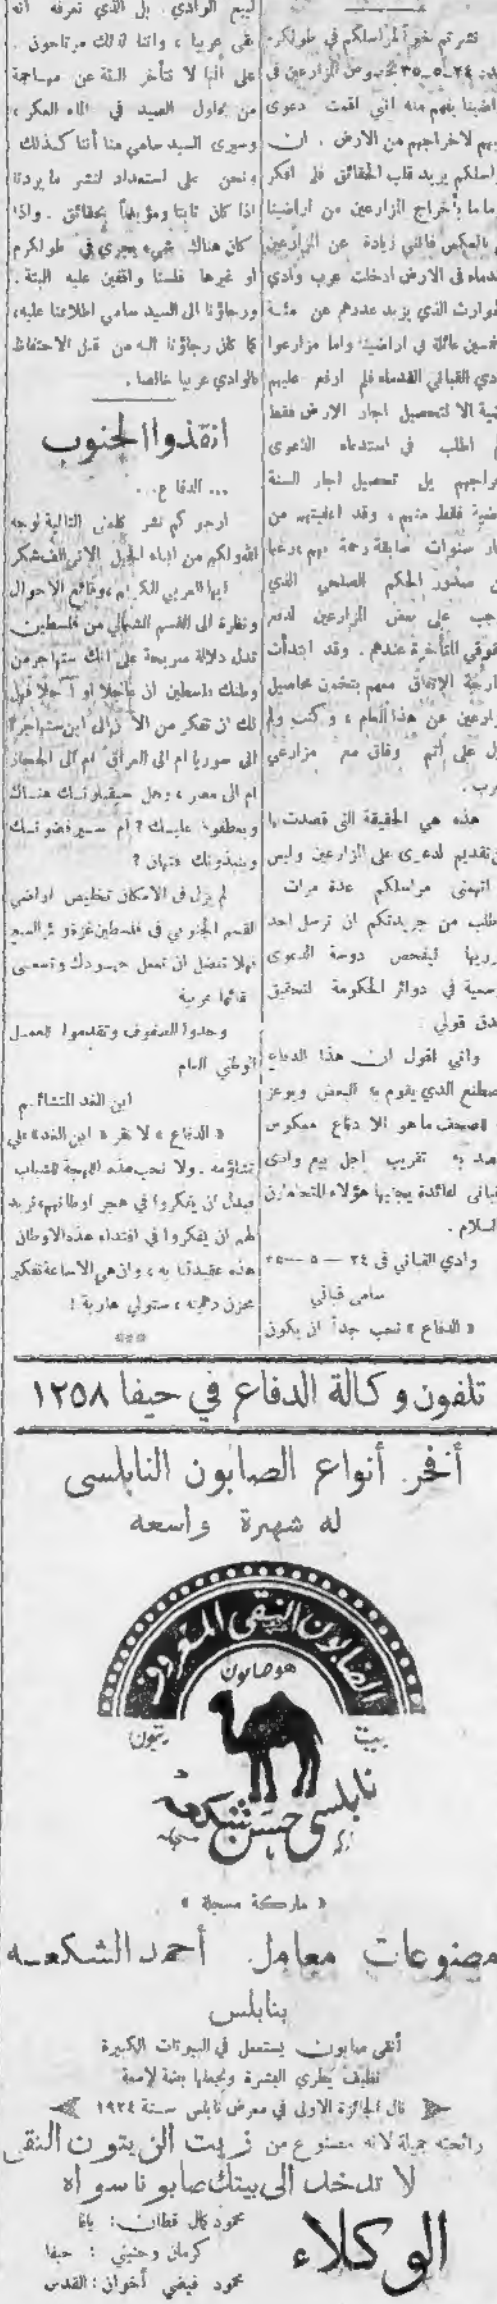 نشرتم خبراً لمراسلكم في طولكرم
بتاريخ ٢٤ــ٥ــ٣٥ بخصوص المزارعين في
اراضينا يفهم منه اني اقمت دعوى
عليهم لاخراجهم من الارض . ان
مراسلكم يريد قلب الحقائق فلم افكر
تماما بأخراج المزارعين من اراضينا
بالعكس فانني زيادة عن المزارعين
القدماء في الارض ادخلت عرب وادي
الحوارث الذي يزيد عددهم عن مئة
وخمسين عائلة في اراضينا واما مزارعوا
وادي القباني القدماء فلم ارفع عليهم
قضية الا لتحصيل اجار الارض فقط
ولم اطلب في استدعاء الدعوى
اخراجهم بل تحصيل اجار السنة
الماضية فقط منهم ، وقد اعفيتهم من
اجار سنوات سابقة رحمة بهم ،رغما
عن صدور الحكم الصلحي الذي
يوجب على بعض المزارعين لدفع
حقوقي المتأخرة عندهم . وقد ابتدأت
بدرجة الإتفاق معهم بتخمين محاصيل
المزارعين عن هذا العام ، وكنت ولم
ازل على أتم وفاق مع مزارعي
العرب .
هذه هي الحقيقة التي قصدت بها
من تقديم لدعوى على المزارعين وليس
كما اتهمني مراسلكم عدة مرات
واطلب من جريدتكم ان ترسل احد
محرريها ليفحص دوسة الدعوى
الرسمية في دوائر الحكومة لتحقيق
صدق قولي
واني اقول ان هذا الدفاع
المصطنع الذي يقوم به البعض ويوعز
به للصحف ما هو الا دفاع معكوس
يقصد به تقريب اجل بيع وادي
القباني لفائدة يجنيها هؤلاء المتحاملون
والسلام .
وادي القباني في ٢٤ — ٥ —٣٥
سامي قباني
« الدفاع » نحب جداً ان يكون
لبيع الوادي . بل الذي نعرفه انه
بقي عربيا ، واننا لذلك مرتاحون .
على اننا لا نتأخر البتة عن مهاجمة
من يحاول الصيد في الماء العكر ،
وسيرى السيد سامي منا أننا كذلك
ونحن على استعداد لنشر ما يردنا
اذا كان ثابتا ومؤيداً بحقائق . واذا
كان هناك شيء يجري في طولكرم
او غيرها فلسنا واقفين عليه البتة .
ورجاؤنا الى السيد سامي اطلاعنا عليه،
كما كان رجاؤنا اليه من قبل الاحتفاظ
بالوادي عربيا خالصا .
أنقذوا الجنوب
... الدفاع ...
ارجو كم نشر كلمتي التالية لوجه
الله ولكم من ابناء الجيل الاتي الف شكر
ايها العربي الكريم ،وقائع الاحوال
ونظرة الى القسم الشمالي من فلسطين
تدل دلالة صريحة على انك ستهاجر من
وطنك فلسطين ان عاجلا او آجلا فهل
لك ان تفكر من الآن الى اين ستهاجر؟
الى سوريا ام الى العراق ام الى الحجاز
ام الى مصر ، وهل سيقبلونك هناك
ويعطفون عليك ؟ أم سيرفضونك
وينبذونك فتهان ؟
لم يزل في الامكان تخليص اراضي
القسم الجنوبي في فلسطين غزة وبئر السبع
فهلا تفضل ان تعمل جهودك وتسعى
بقائها عربية
وحدوا الصفوف وتقدموا للعمل
الوطني العام
ابن الغد المتشائم
« الدفاع » لا نقر « ابن الغد» على
تشاؤمه . ولا نحب هذه اللهجة للشباب
فبدل ان يفكروا في هجر اوطانهم، نريد
لهم ان يفكروا في افتداء هذه الاوطان
هذه عقيدتنا به ، وان هي الا ساعة تفكير
بحزن وهمة ، ستولي هاربة !
***
تلفون وكالة الدفاع في حيفا ١٢٥٨
أفخر أنواع الصابون النابلسي
له شهرة واسعه
الصابون النقي المعروف
هو صابون
بيت زيتون
نابلسي حسن شكعه
« ماركة مسجلة »
مصنوعات معامل أحمد الشكعه
بنابلس
أنقى صابون يستعمل في البيوتات الكبيرة
نظيف يطري البشرة ويجعلها بضة لامعة
نال الجائزة الاولى في معرض نابلس سنة ١٩٢٤
رائحته جميلة لانه مصنوع من زيت الزيتون النقي
لا تدخل الى بيتك صابونا سواه
الوكلاء
محمود كمال قطان : يافا
كرمان وحنيني : حيفا
محمود فيضي أخوان : القدس